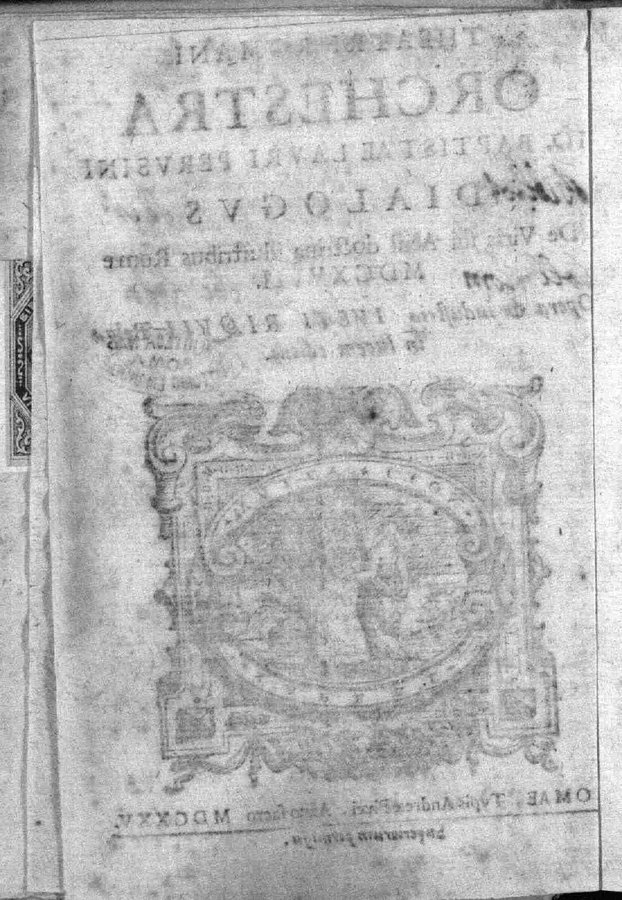 THEATRI ROMANI
ORCHESTRA
IO. BAPTISTAE LAVRI PERVSINI
DIALOGVS
De Viris sui Aeui doctrina illustribus Romae
Opera & industria IVSTI RIQVII
in lucem edita.
OMAE, Typis Andreae Phaei. Anno sacro MDCXXV.
Superiorum permissu.